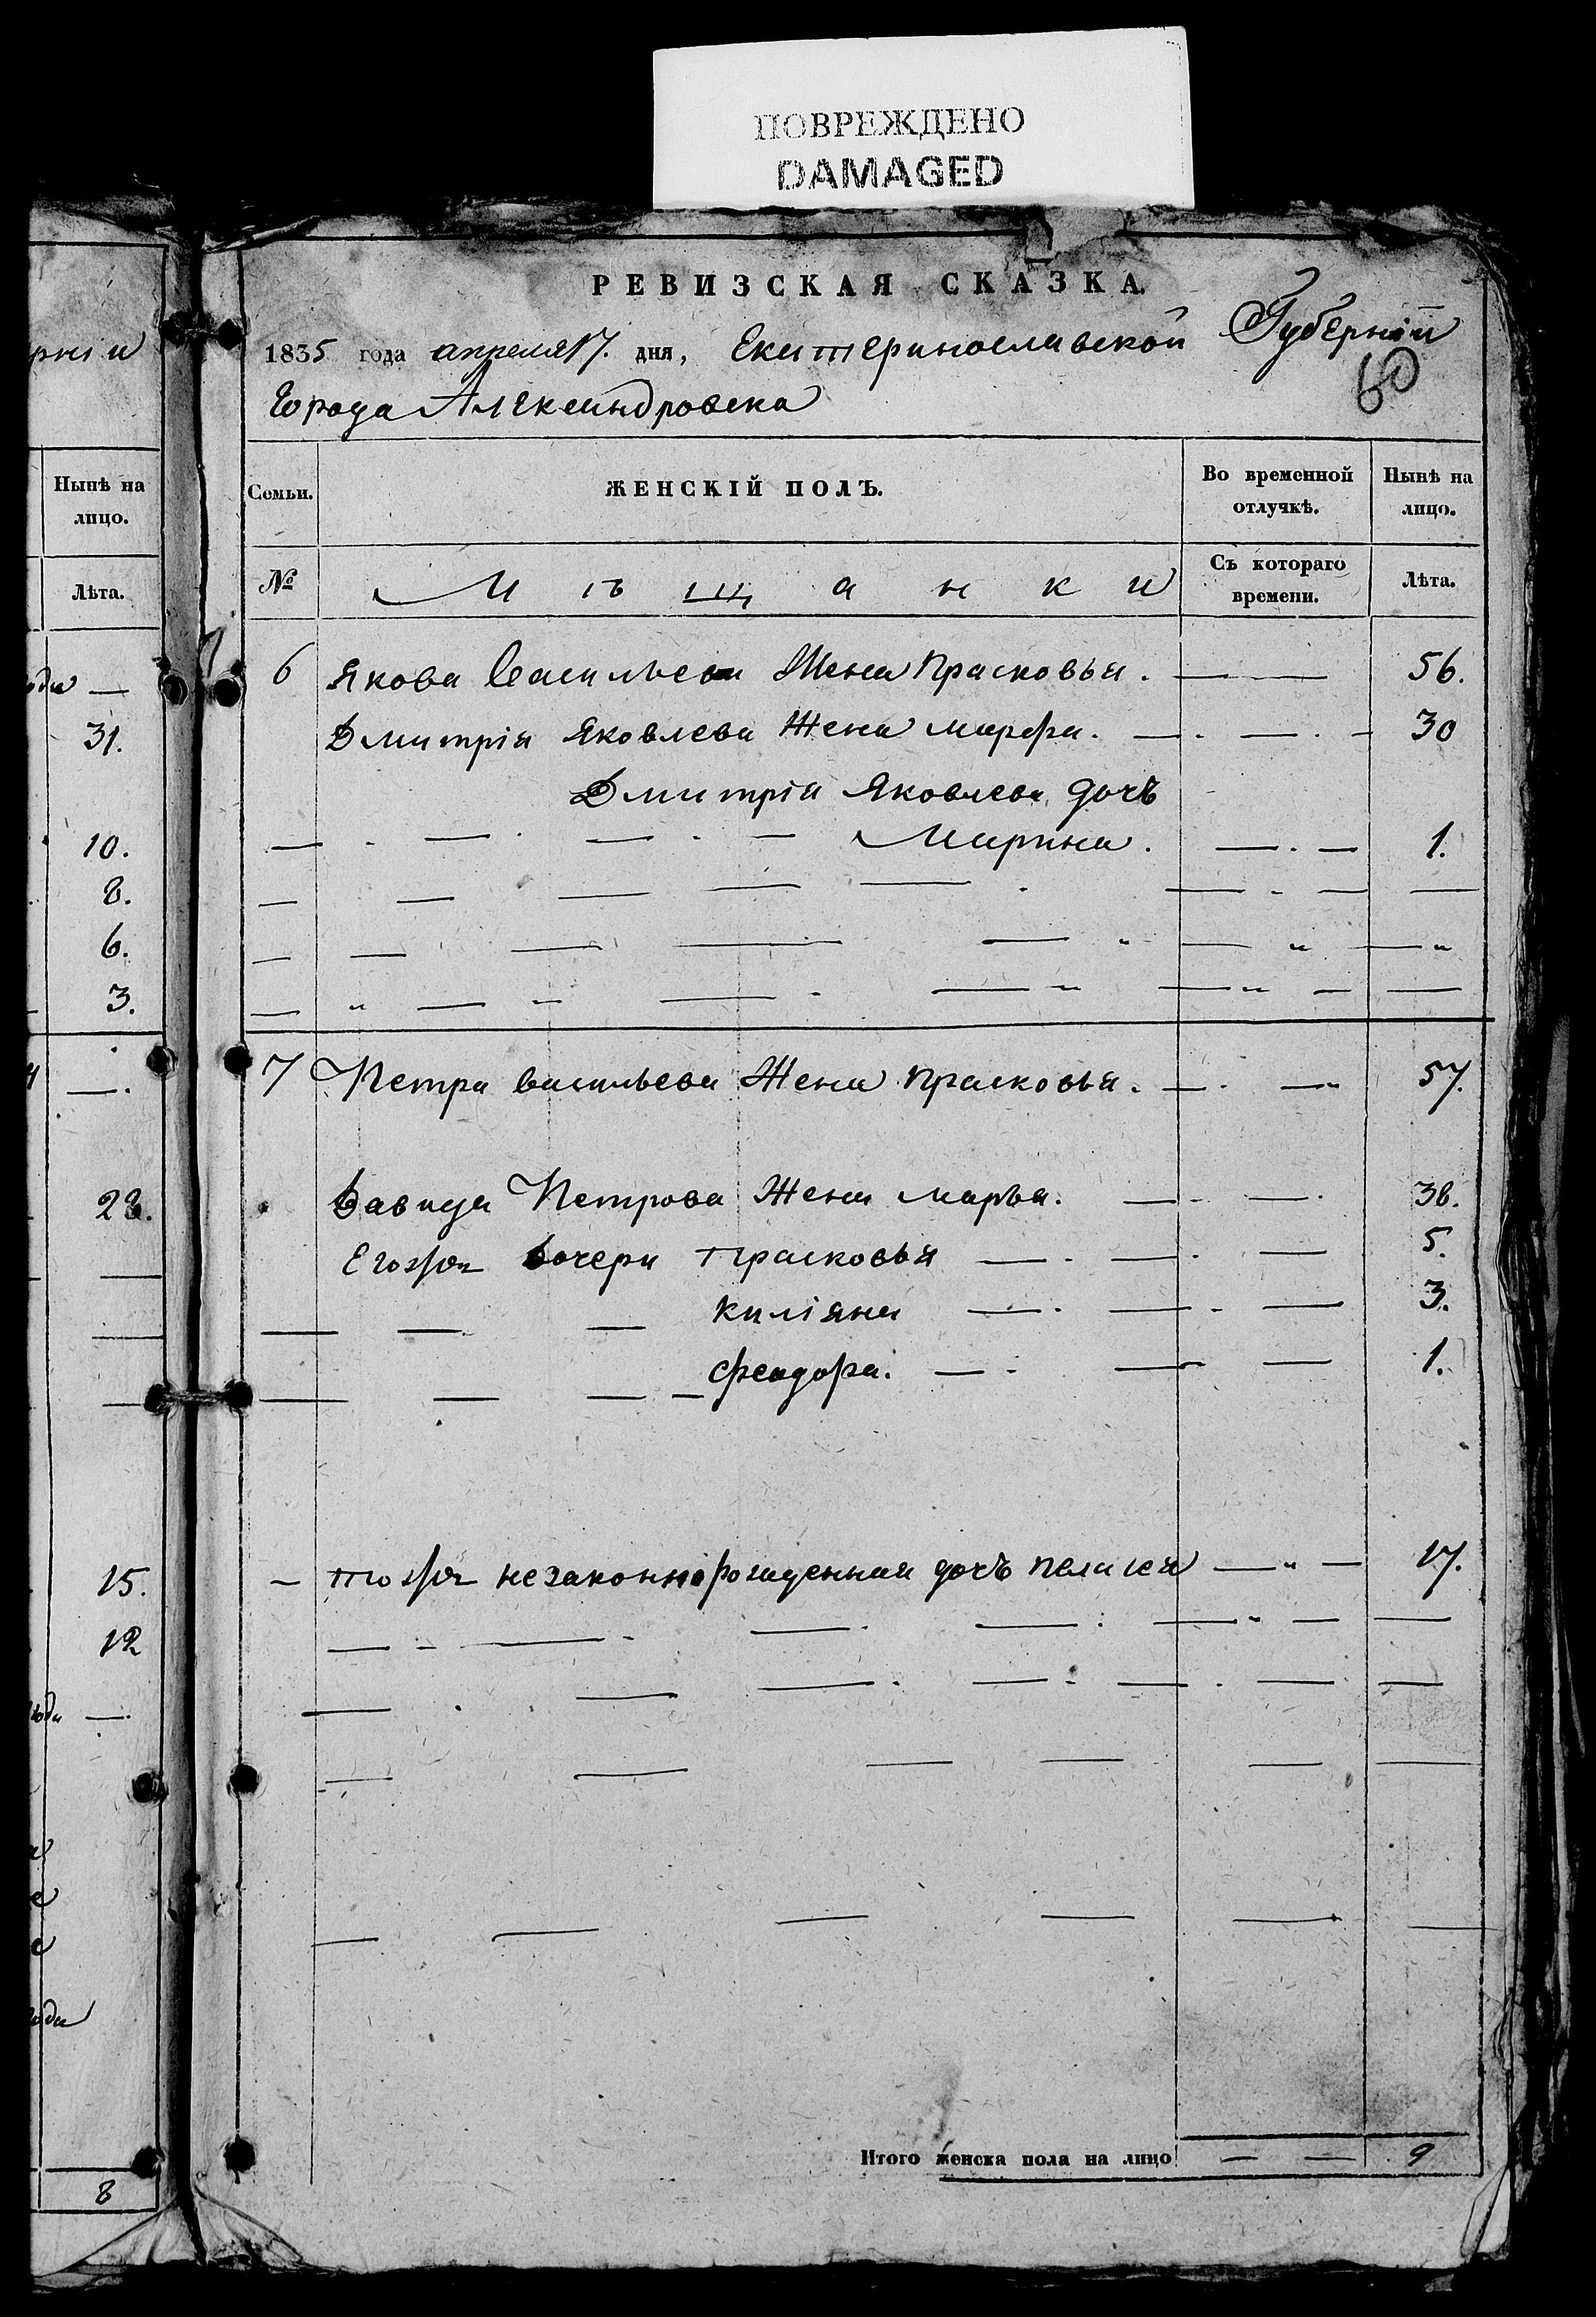 ПОВРЕЖДЕНО
DAMAGED
РЕВИЗСКАЯ СКАЗКА.
1835 года апреля 17. дня, Екатеринославской Губерніи
60
Города Александровска
Семьи.
ЖЕНСКІЙ ПОЛЪ.
Во временной отлучкѣ.
Нынѣ на лицо.
№
Мѣщанки
Съ котораго времени.
Лѣта.
6 Якова Васильева Жена Прасковья. — — 56.
Дмитрія Яковлева Жена марфа. — . — . — 30
Дмитрія Яковлева дочъ
Марина. — . — 1.
7 Петра васильева Жена прасковья. — . — 57.
Давида Петрова Жена марья. — . — . 36.
Егожъ дочери прасковья — . — . — 5.
киліяна — . — . — 3.
феодора. — . — — 1.
— тогожъ незаконнорожденная дочъ пелагея — " — 17.
Итого женска пола на лицо — — 9
рніи
Нынѣ на
лицо.
Лѣта.
ода —
31.
10.
8.
6.
3.
—.
23.
15.
12
года —.
года
8